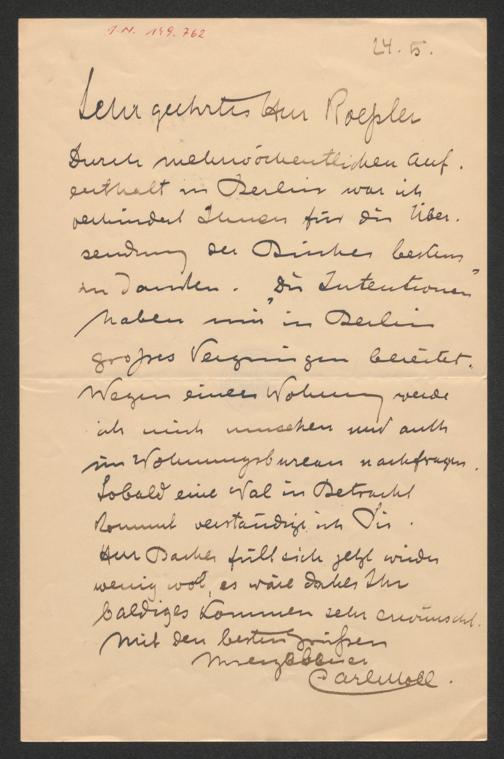 I.N. 149.762
24. 5.
Sehr geehrtes Herr Roeßler
Durch mehrwöchentlichen Auf.
enthalt in Berlin war ich
verhindert Ihnen für die Über.
sendung der Bücher bestens
zu danken. "Die Intentionen"
haben mir in Berlin
großes Vergnügen bereitet.
Wegen einer Wohnung werde
ich mich umsehen und auch
im Wohnungsbureau nachfragen.
Sobald eine Wal in Betracht
kommt verständige ich Sie.
Herr Bacher füllt sich jetzt wieder
wenig wol, es wäre daher Ihr
baldiges Kommen sehr erwünscht.
Mit den besten Grüßen
Ihr ergebener
Carl Moll.